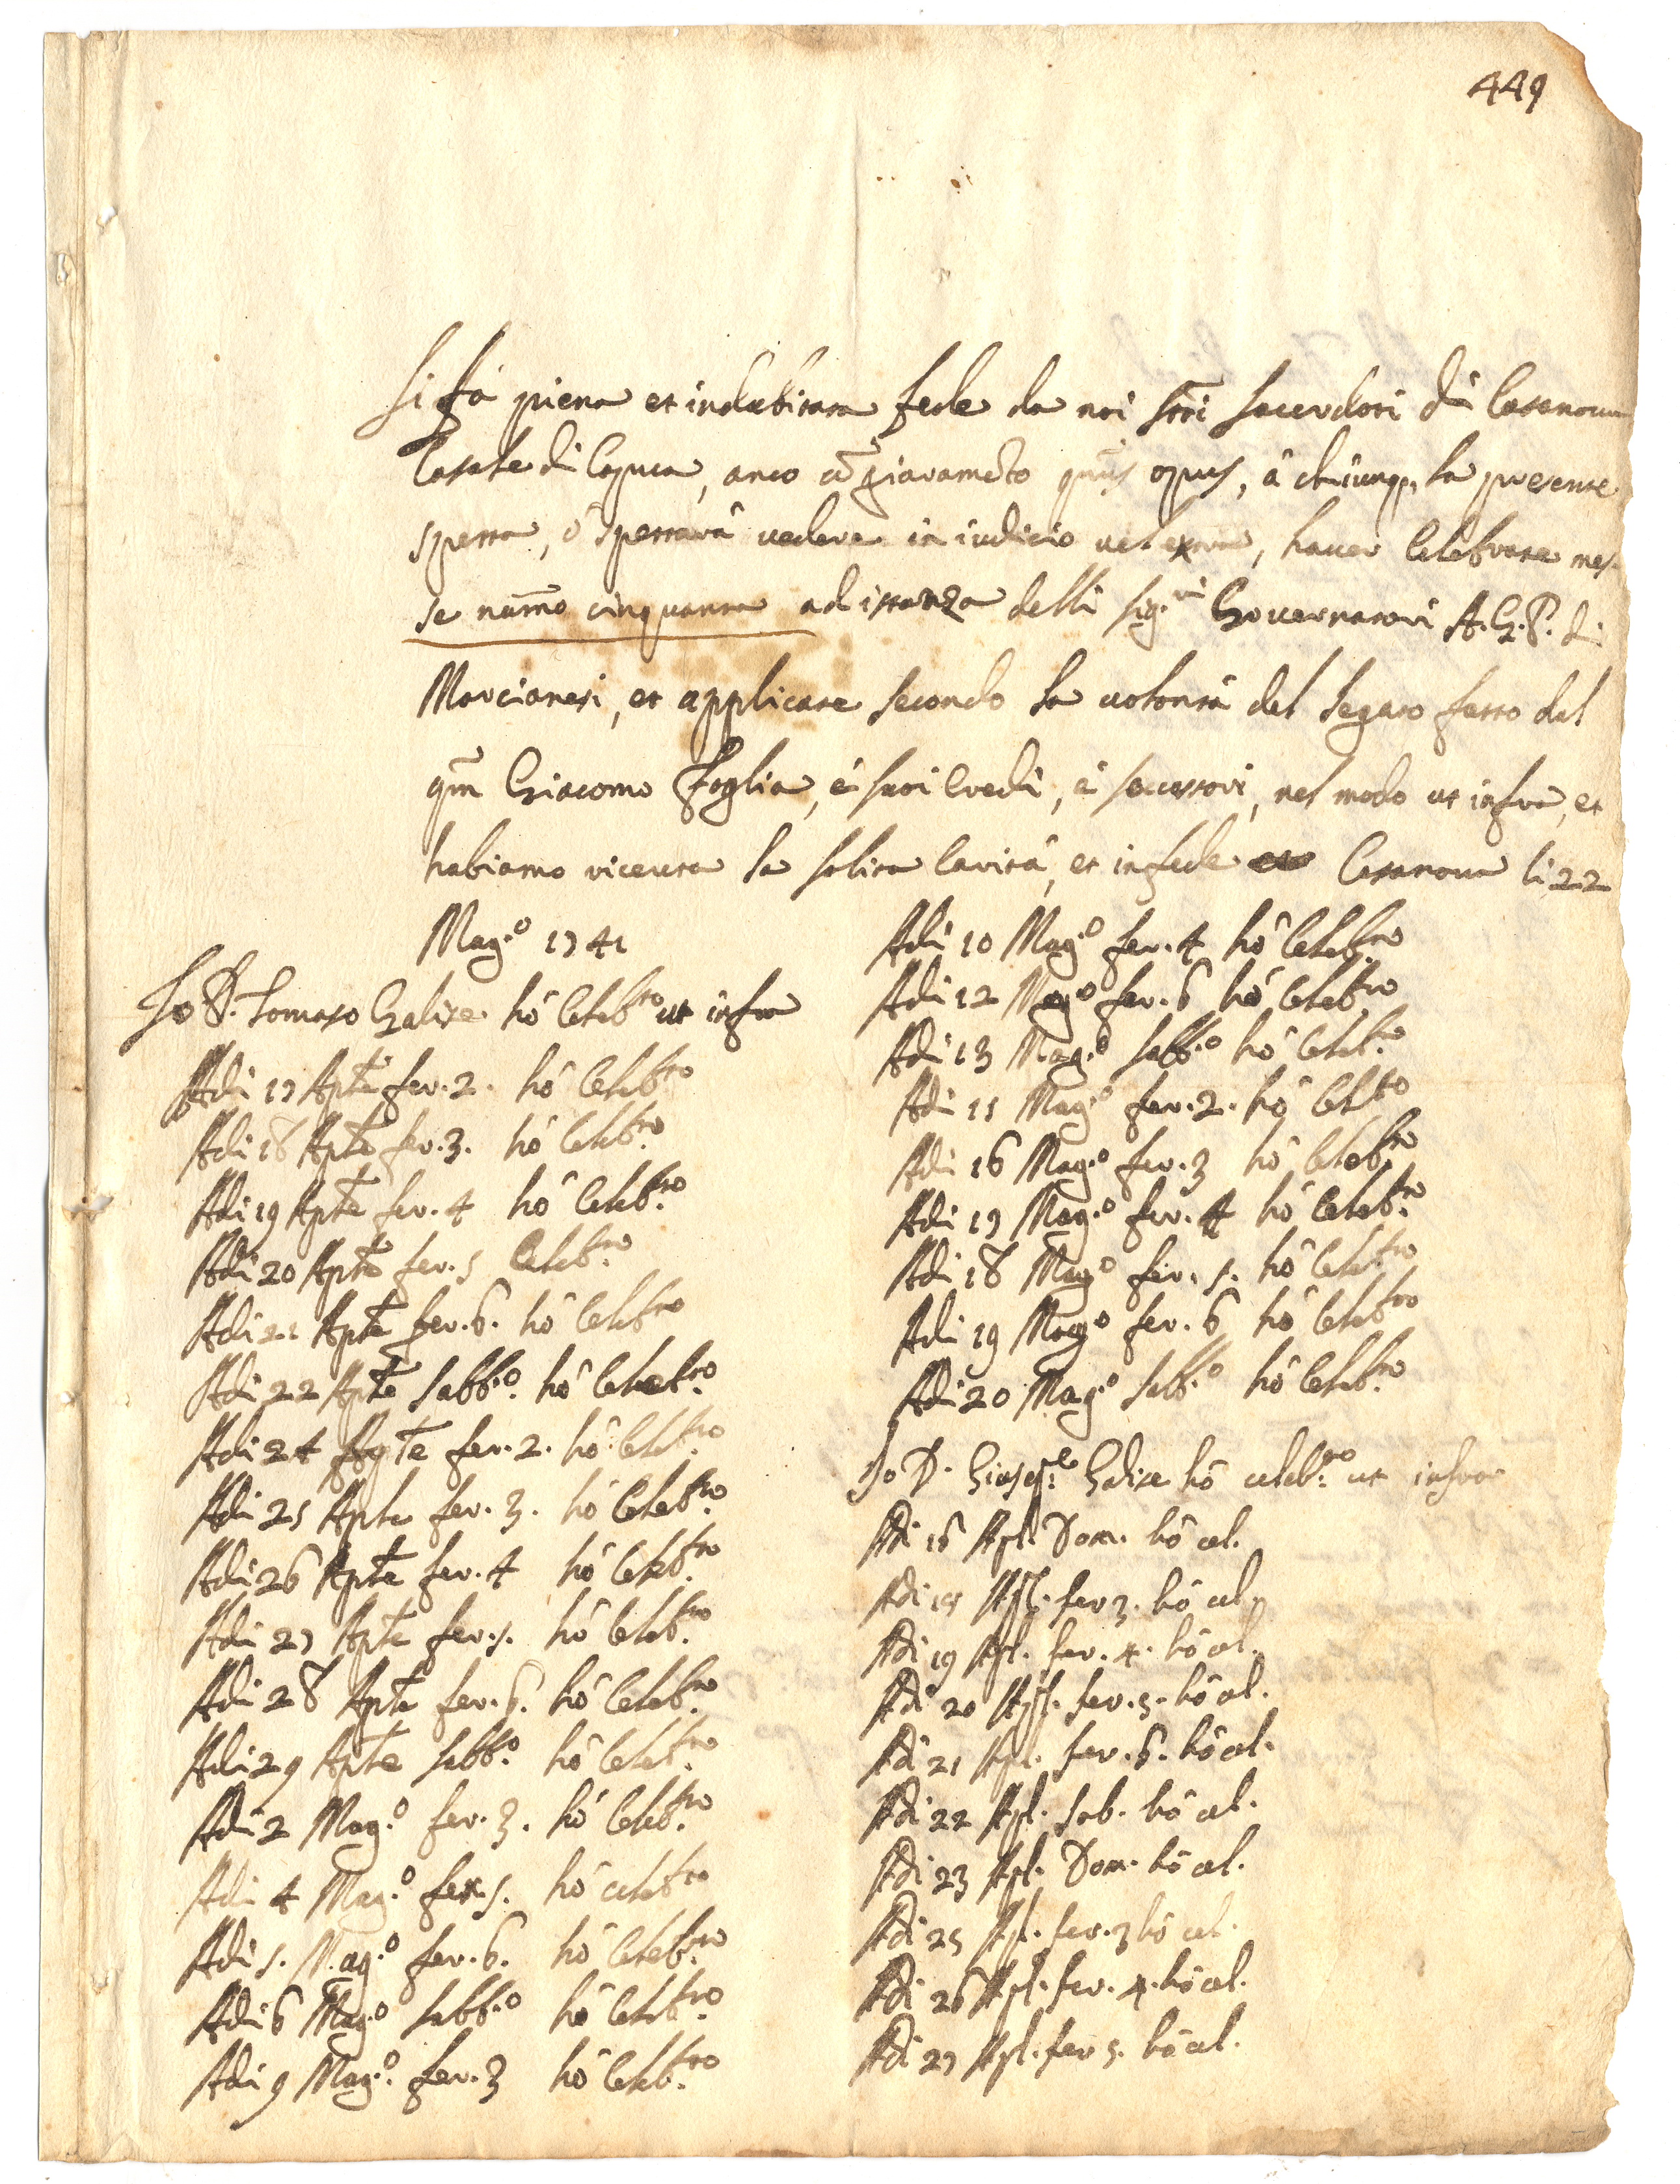 449
Si fá piena et indubitata fede da noi sttī Sacerdoti di Casanova
Casale di Capua, anco cō giuramēto quīs opus, á chiunq, la presente
spetta, ó spettará vedere in iudicio vel extra, haver Celebrate mes-
se num̄o cinquanta ad istanza delli Sig.ri Governatori A.G.P. di
Marcianesi, et applicate secondo la volontá del legato fatto dal
qm̄ Giacomo Foglia, é suoi Eredi, é soccessori, nel modo ut infra, et
habiamo riceuta la solita Caritá, et in fede Casanova li 22
Mag.o 1741
Io D. Tomaso Galise hó Celeb.to ut infra
Adi 17 Aple fer. 2. hó Celeb.to
Adi 18 Aple fer. 3. hó Celeb.to
Adi 19 Aple fer. 4 hó Celeb.to
Adi 20 Aple fer. 5 Celeb.to
Adi 21 Aple fer. 6. hó Celeb.to
Adi 22 Aple Sabb.o hó Celeb.to
Adi 24 Aple fer. 2. hó Celeb.to
Adi 25 Aple fer. 3. hó Celeb.to
Adi 26 Aple fer. 4 hó Celeb.to
Adi 27 Aple fer. 5. hó Celeb.to
Adi 28 Aple fer. 6. hó Celeb.to
Adi 29 Aple Sabb.o hó Celeb.to
Adi 2 Mag.o fer. 3. hó Celeb.to
Adi 4 Mag.o fer. 5. hó celeb.to
Adi 5. Mag.o fer. 6. hó Celeb.to
Adi 6 Mag.o Sabb.o hó Celeb.to
Adi 9 Mag.o fer. 3 hó Celeb.to
Adi 10 Mag.o fer. 4 hó Celeb.to
Adi 12 Mag.o fer. 6 hó Celeb.to
Adi 13 Mag.o Sabb.o hó Celeb.to
Adi 15 Mag.o fer. 2. hó Celeb.to
Adi 16 Mag.o fer. 3 hó Celeb.to
Adi 17 Mag.o fer. 4 hó Celeb.to
Adi 18 Mag.o fer. 5. hó Celeb.to
Adi 19 Mag.o fer. 6 hó Celeb.to
Adi 20 Mag.o Sabb.o hó Celeb.to
Io D. Giusep.e Galise hó celeb.to ut infra
Adi 16 Apl. Dom. hó cel.
Adi 18 Apl. fer 3. hó cel.
Adi 19 Apl. fer. 4. hó cel.
Adi 20 Apl. fer. 5. hó cel.
Adi 21 Apl. fer. 6. hó cel.
Adi 22 Apl. Sab. hó cel.
Adi 23 Apl. Dom. hó cel.
Adi 25 Apl. fer. 3 hó cel.
Adi 26 Apl. fer. 4. hó cel.
Adi 27 Apl. fer 5. hó cel.